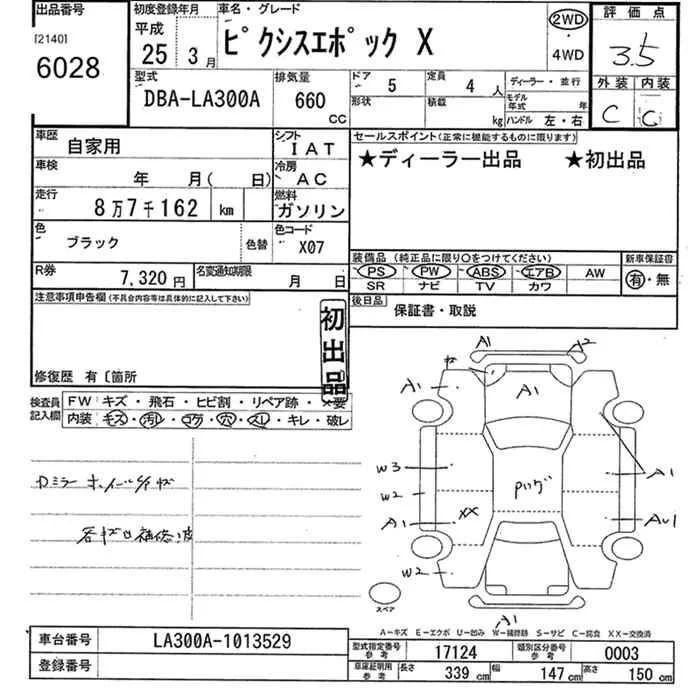 出品番号 初度登録年月 車名・グレード 評価点
[2140] 平成
6028 25 3月 ピクシスエポック X 2WD 4WD 3.5
外装 内装
C C
型式 排気量 ドア 5 定員 4人 ディーラー・並行
DBA-LA300A 660 CC 形状 積載 kg モデル年式 年 ハンドル 左・右
車歴 自家用 シフト IAT セールスポイント(正常に機能するものに限ります)
★ディーラー出品 ★初出品
車検 年 月( 日) 冷房 AC
走行 8万7千162 km 燃料 ガソリン
色 ブラック 色替 色コード X07
装備品(純正品に限り○をつけてください) 新車保証書
PS PW ABS エアB AW 有・無
SR ナビ TV カワ
R券 7,320円 名変通知期限 月 日
後日品 保証書・取説
注意事項申告欄(不具合内容等は具体的に記入して下さい)
初出品
修復歴 有〔箇所
検査員記入欄 FW キズ・飛石・ヒビ割・リペア跡・×要
内装 キズ・汚レ・コゲ・穴・スレ・キレ・破レ
Dミラー ホイールキズ
A1 A2
A1 A1
W3 A1
W2
XX
A1 AU1
W2
スペア
A1
A-キズ E-エクボ U-凹み W-補修跡 S-サビ C-腐食 XX-交換済
車台番号 LA300A-1013529
登録番号
型式指定番号 参考 17124 類別区分番号 参考 0003
車庫証明用 参考 長さ 339 cm 幅 147 cm 高さ 150 cm